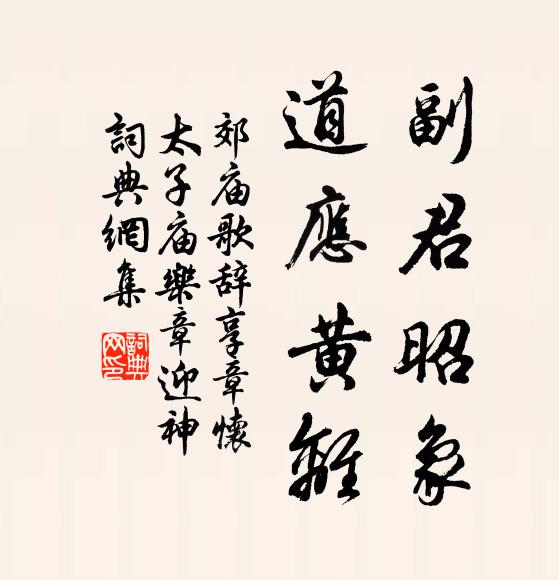 副君昭象
道應黃離
郊庙歌辞享章懷
太子庙樂章迎神
詞典網集
詞典網印